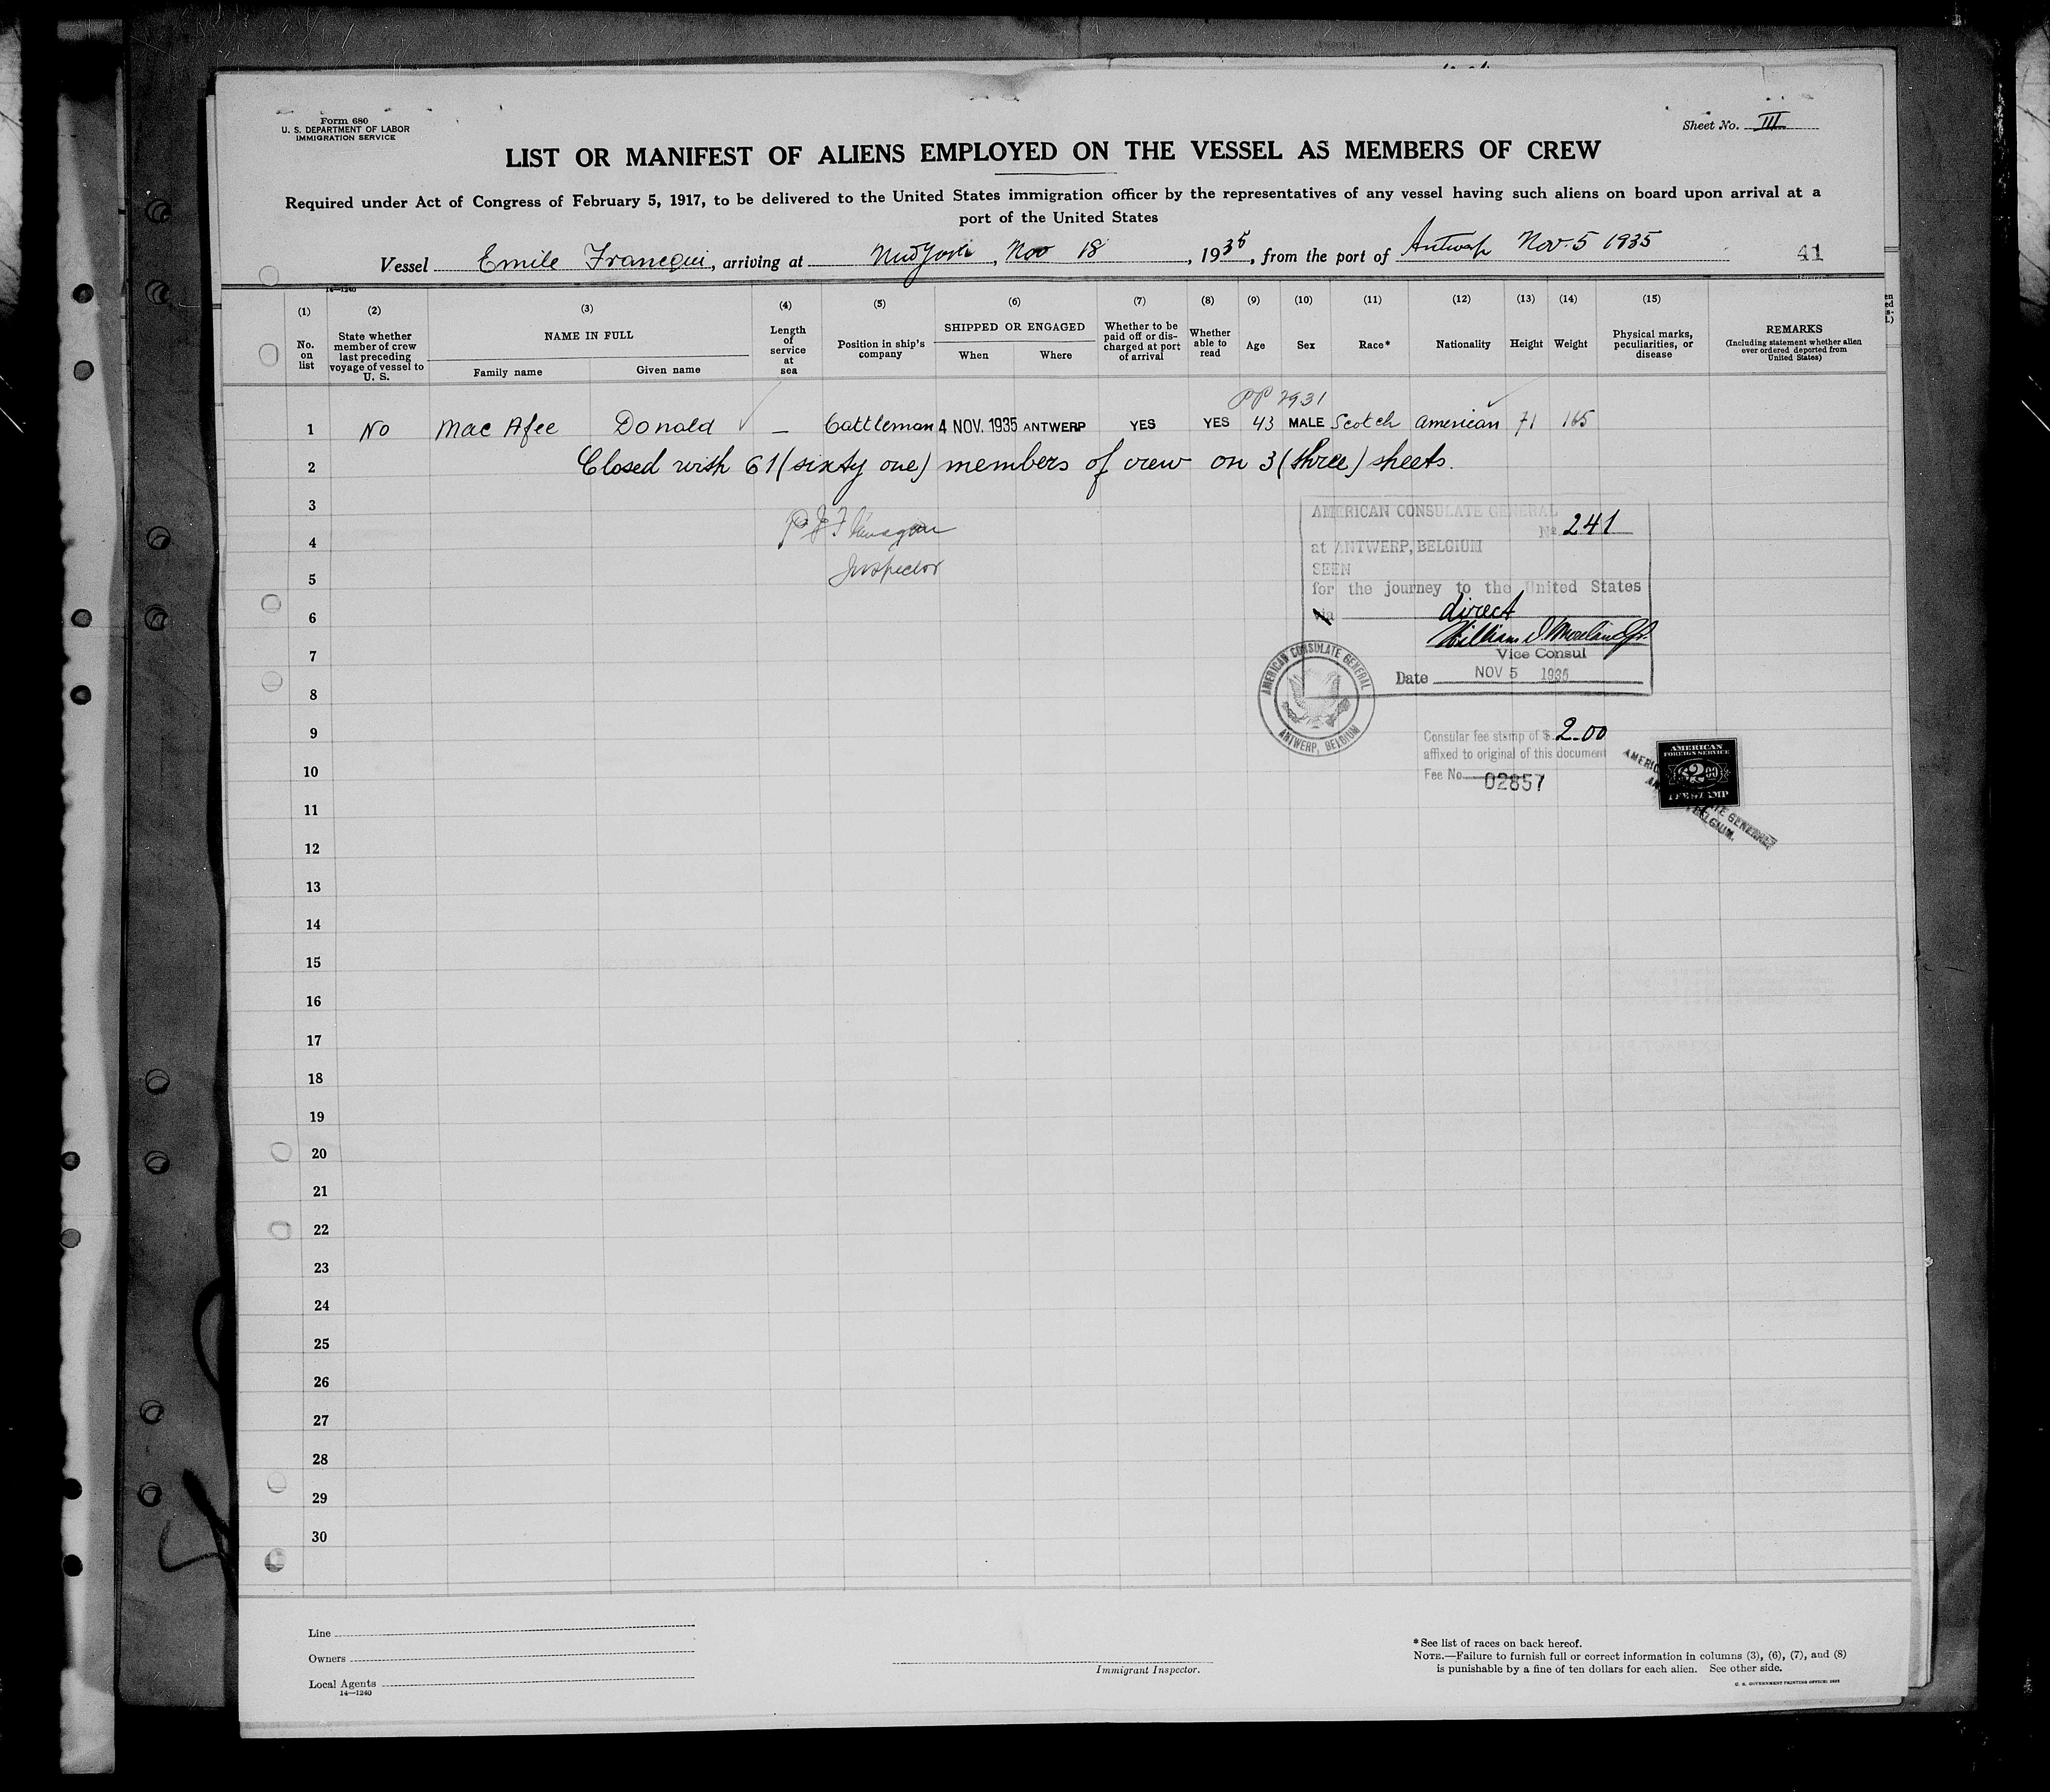 Form 680
U. S. DEPARTMENT OF LABOR
IMMIGRATION SERVICE
Sheet No. III
LIST OR MANIFEST OF ALIENS EMPLOYED ON THE VESSEL AS MEMBERS OF CREW
Required under Act of Congress of February 5, 1917, to be delivered to the United States immigration officer by the representatives of any vessel having such aliens on board upon arrival at a
port of the United States
Vessel Emile Francqui, arriving at New York, Nov 18, 1935, from the port of Antwerp Nov. 5 1935
41
14—1240
(1) (2) (3) (4) (5) (6) (7) (8) (9) (10) (11) (12) (13) (14) (15)
No. on list
State whether member of crew last preceding voyage of vessel to U. S.
NAME IN FULL
Family name Given name
Length of service at sea
Position in ship's company
SHIPPED OR ENGAGED
When Where
Whether to be paid off or discharged at port of arrival
Whether able to read
Age
Sex
Race*
Nationality
Height
Weight
Physical marks, peculiarities, or disease
REMARKS
(Including statement whether alien ever ordered deported from United States)
PP 2931
1 No Mac Afee Donald — Cattleman 4 NOV. 1935 ANTWERP YES YES 43 MALE Scotch American 71 165
2 Closed with 61 (sixty one) members of crew on 3 (three) sheets.
3
4
5 Inspector
6
7
8
9
10
11
12
13
14
15
16
17
18
19
20
21
22
23
24
25
26
27
28
29
30
AMERICAN CONSULATE GENERAL
No. 241
at ANTWERP, BELGIUM
SEEN
for the journey to the United States
via direct
William D Moreland Jr.
Vice Consul
Date NOV 5 1935
AMERICAN CONSULATE GENERAL
ANTWERP, BELGIUM
Consular fee stamp of $ 2.00
affixed to original of this document
Fee No. 02857
AMERICAN
FOREIGN SERVICE
$2.00
FEE STAMP
Line
Owners
Local Agents
14—1240
Immigrant Inspector.
* See list of races on back hereof.
NOTE.—Failure to furnish full or correct information in columns (3), (6), (7), and (8)
is punishable by a fine of ten dollars for each alien. See other side.